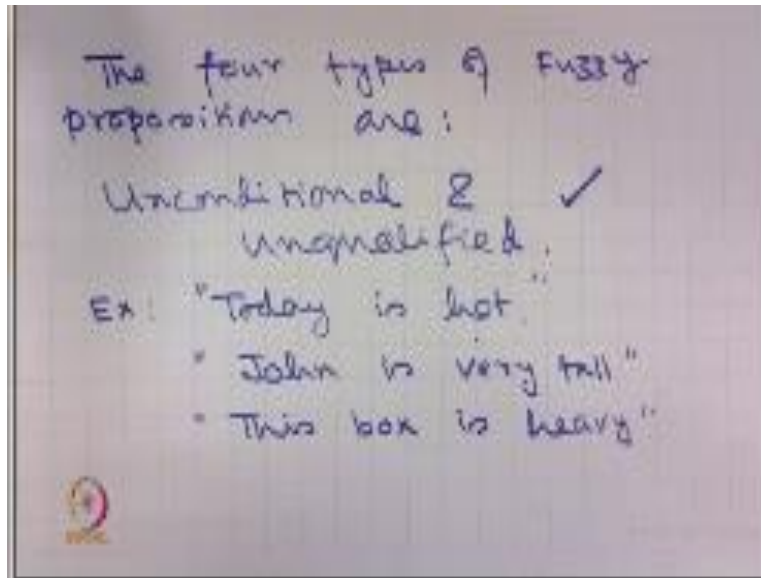 The four types of Fuzzy
propositions are:
Unconditional & ✓
unqualified.
Ex: "Today is hot."
"John is very tall"
"This box is heavy"